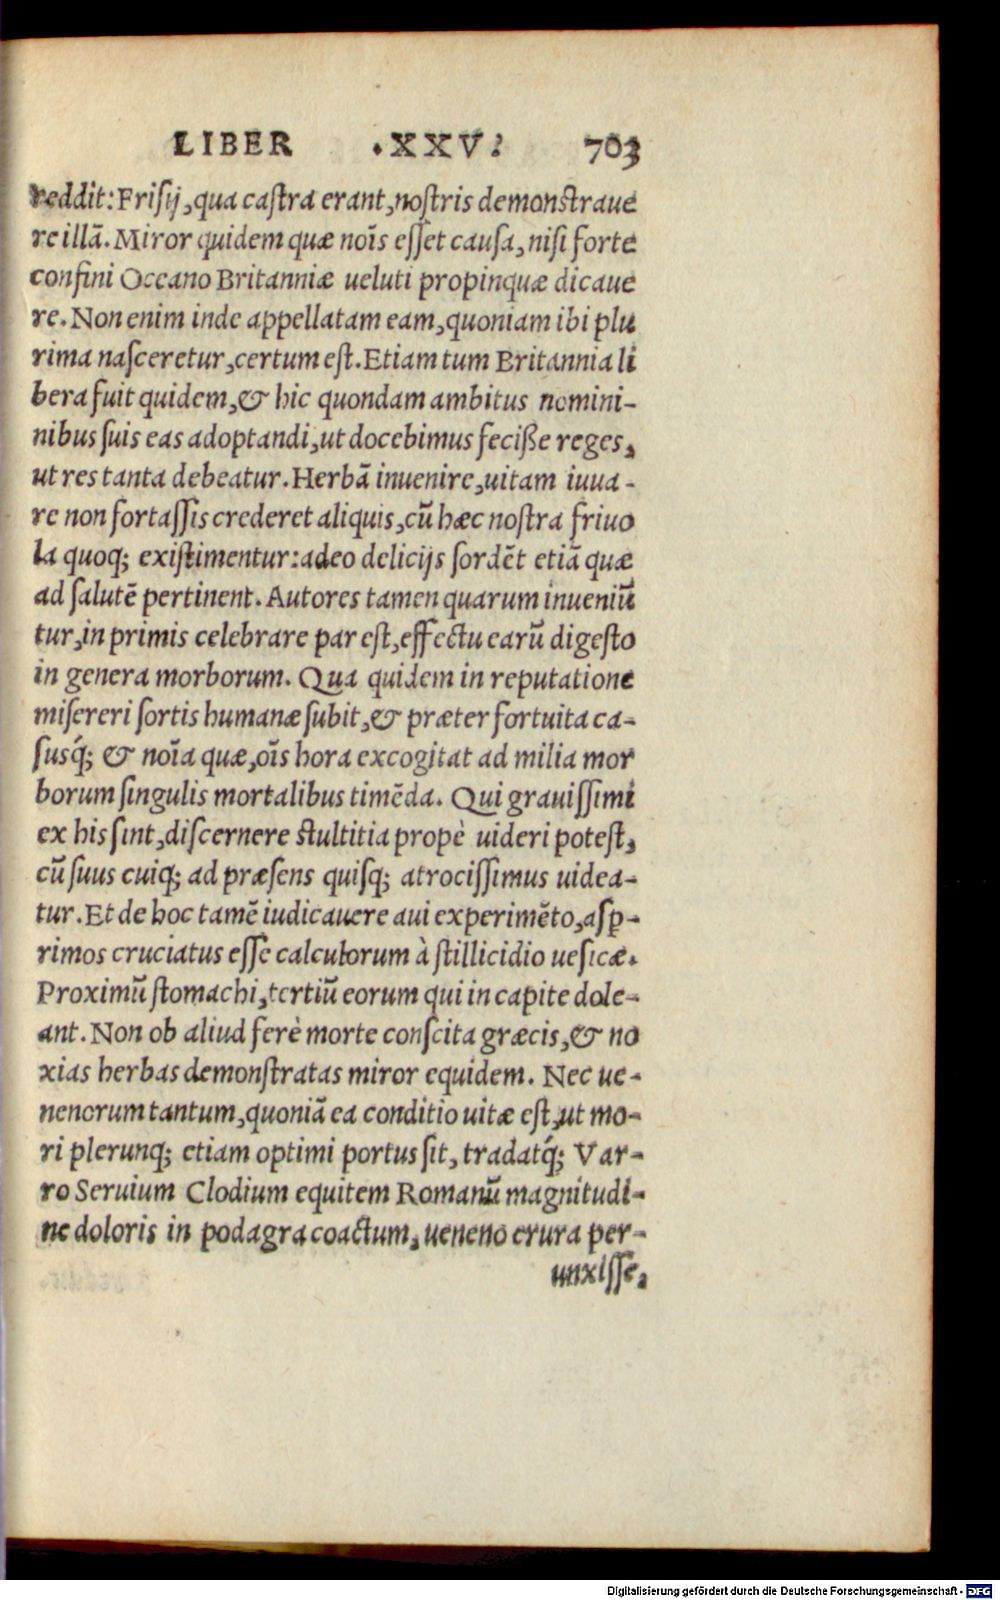 LIBER .XXV. 703
reddit: Frisij, qua castra erant, nostris demonstraue
re illā. Miror quidem quæ noīs esset causa, nisi forte
confini Oceano Britanniæ ueluti propinquæ dicaue
re. Non enim inde appellatam eam, quoniam ibi plu
rima nasceretur, certum est. Etiam tum Britannia li
bera fuit quidem, & hic quondam ambitus nomini-
nibus suis eas adoptandi, ut docebimus fecisse reges,
ut res tanta debeatur. Herbā inuenire, uitam iuua-
re non fortassis crederet aliquis, cū hæc nostra friuo
la quoq; existimentur: adeo delicijs sordēt etiā quæ
ad salutē pertinent. Autores tamen quarum inueniū
tur, in primis celebrare par est, effectu earū digesto
in genera morborum. Qua quidem in reputatione
misereri sortis humanæ subit, & præter fortuita ca-
susq́; & noīa quæ, oīs hora excogitat ad milia mor
borum singulis mortalibus timēda. Qui grauissimi
ex his sint, discernere stultitia propè uideri potest,
cū suus cuiq; ad præsens quisq; atrocissimus uidea-
tur. Et de hoc tamē iudicauere aui experimēto, asꝑ-
rimos cruciatus esse calculorum à stillicidio uesicæ.
Proximū stomachi, tertiū eorum qui in capite dole-
ant. Non ob aliud ferè morte conscita græcis, & no
xias herbas demonstratas miror equidem. Nec ue-
nenorum tantum, quoniā ea conditio uitæ est, ut mo-
ri plerunq; etiam optimi portus sit, tradatq́; Var-
ro Seruium Clodium equitem Romanū magnitudi-
ne doloris in podagra coactum, ueneno crura per-
unxisse,
Digitalisierung gefördert durch die Deutsche Forschungsgemeinschaft - DFG